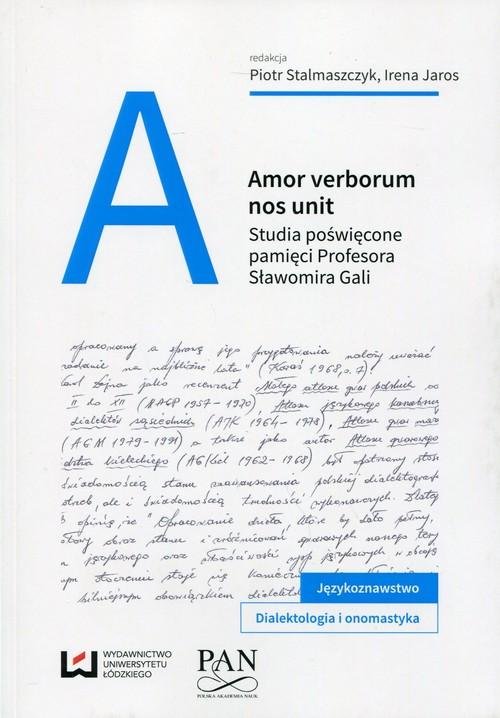 redakcja
Piotr Stalmaszczyk, Irena Jaros
A
Amor verborum
nos unit
Studia poświęcone
pamięci Profesora
Sławomira Gali
opracowany a sprawę jego przygotowania należy uważać
zadanie na najbliższe lata" (Karaś 1968, s. 7).
jako recenzent Małego atlasu gwar polskich
II do XII (MAGP 1957-1970), Atlasu językowego
dialektów sąsiednich (AJK 1964-1978), Atlasu gwar
(AGM 1979-1991) a także jako autor Atlasu gwarowego
(AGKiel 1962-1968) był
świadomością stanu zaawansowania polskiej
ale i świadomością trudności wykonawczych.
opinię, że "Opracowanie dzieła, które by dało pełny,
obraz stanu i zróżnicowań gwarowych naszego
językowego oraz właściwości językowych w
stoczeniu staje się
obowiązkiem
Językoznawstwo
Dialektologia i onomastyka
WYDAWNICTWO
UNIWERSYTETU
ŁÓDZKIEGO
PAN
POLSKA AKADEMIA NAUK